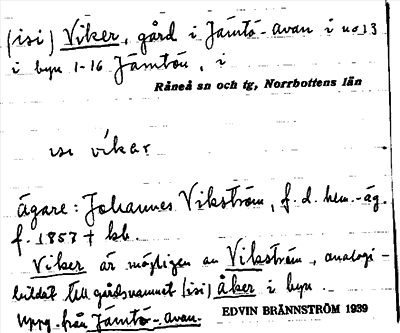 (isi) Viker, gård i Jämtö-avan i no 13
i byn 1-16 Jämtön, i
Råneå sn och tg, Norrbottens län
isi víkar
ägare: Johannes Vikström, f.d. hem.-äg.
f. 1857 † bb.
Viker är möjligen av Vikström, analogi-
bildat till gårdsnamnet (isi) åker i byn.
Uppg. från Jämtö-avan.
EDVIN BRÄNNSTRÖM 1939